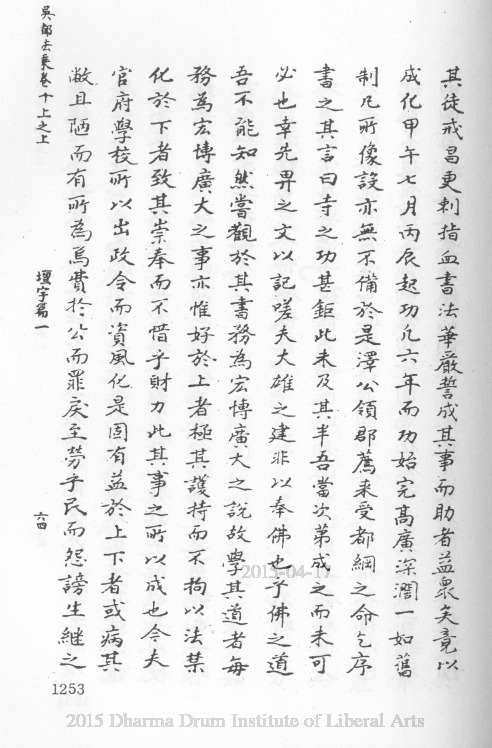 其徒戒昌更刺指血書法華嚴誓成其事而助者益衆矣竟以
成化甲午七月丙辰起功凡六年而功始完高廣深濶一如舊
制凡所像設亦無不備於是澤公領郡薦来受都綱之命乞序
書之其言曰寺之功甚鉅此未及其半吾當次第成之而未可
必也幸先畀之文以記嗟夫大雄之建非以奉佛也乎佛之道
吾不能知然嘗觀於其書務為宏博廣大之說故學其道者每
務為宏博廣大之事亦惟好於上者極其護持而不拘以法某
化於下者致其崇奉而不惜乎財力此其事之所以成也令夫
官府學校所以出政令而資風化是固有益於上下者或病其
敝且陋而有所為焉費於公而罪戾至勞乎民而怨謗生継之
吳都去乗卷十上之上
壇宇篇一
六四
1253
2015-04-17
2015 Dharma Drum Institute of Liberal Arts